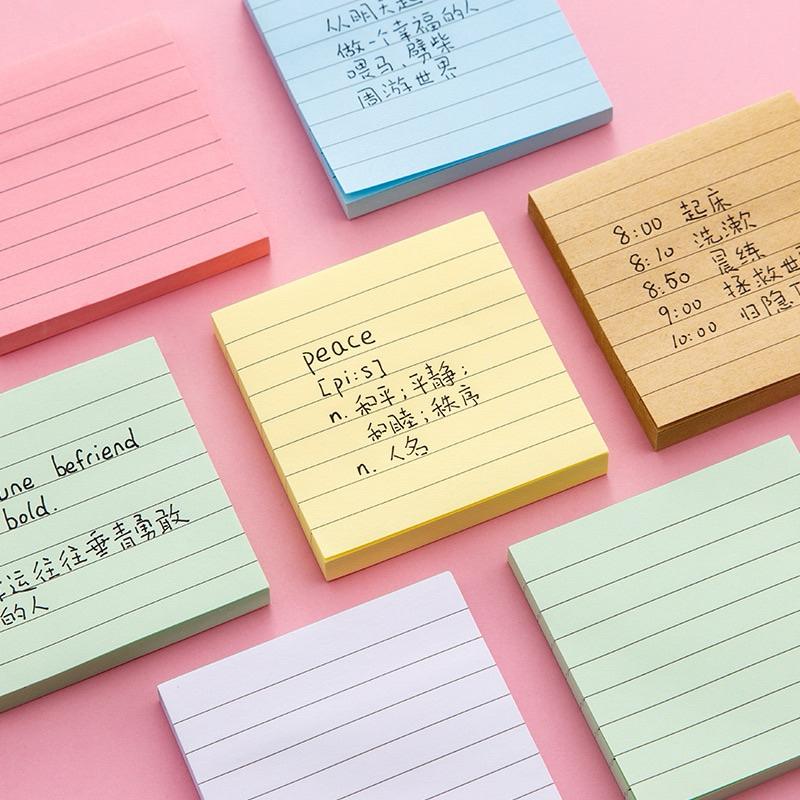 从明天起
做一个幸福的人
喂马、劈柴
周游世界
8:00 起床
8:10 洗漱
8:50 晨练
9:00 拯救世
10:00 归隐
peace
[pi:s]
n. 和平;平静;
和睦;秩序
n. 人名
une befriend
bold.
运往往垂青勇敢
的人